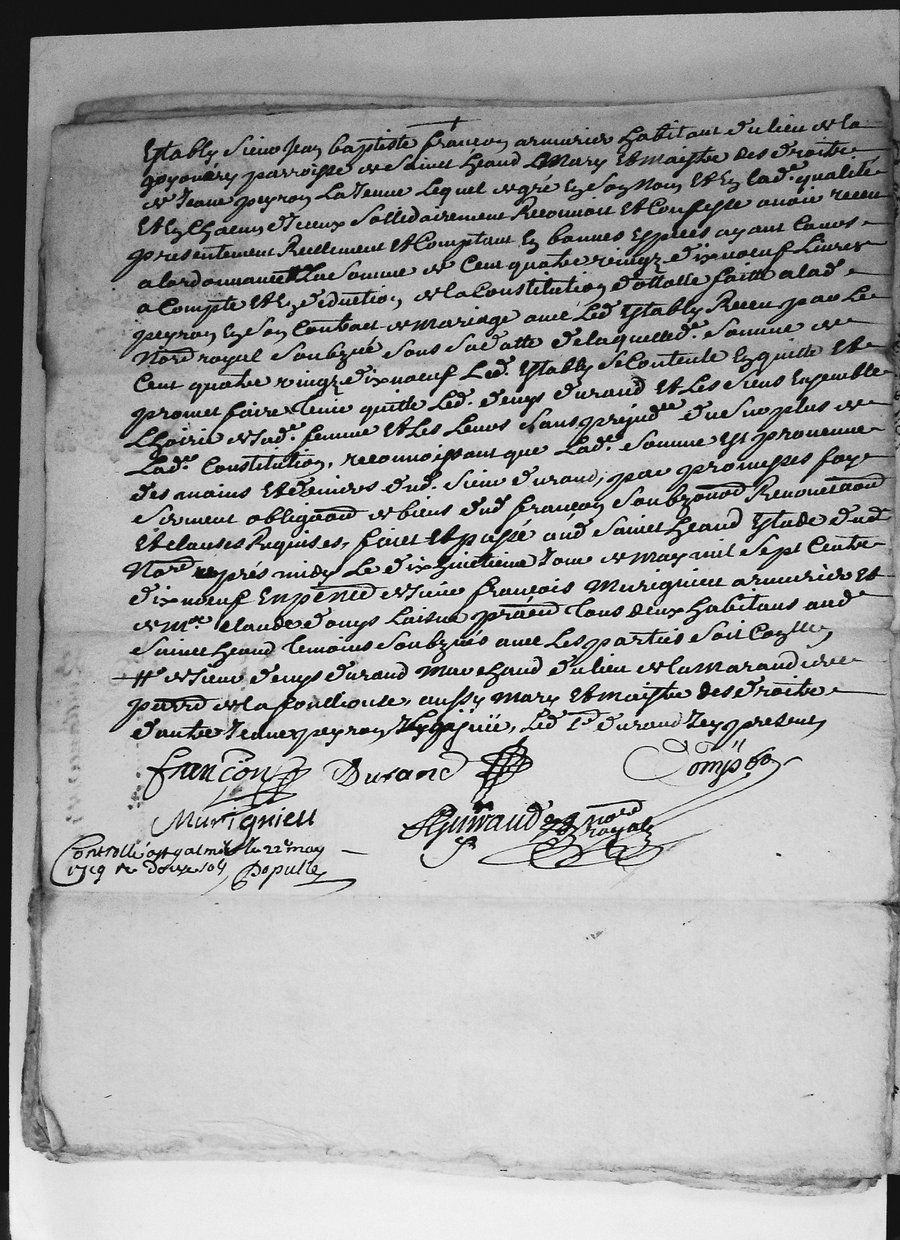 Estably Sieur Jean baptiste françon armurier habitant du lieu de la
goyonary parroisse de Saint heand Mary et maistre des droits
de Jeane peyron La Jeune Lequel de gré En son Nom Et En lad.e qualité
Et En Chacun d'iceux Sollidairement Reconnoit Et Confesse avoir receu
presentement Reellement Et Comptant En bonnes Especes ayant Cours
a lordonnance La Somme de Cent quatre vingt dix noeuf Livres
a Compte Et En deduction de la Constitution dottalle faitte a lad.e
peyron En Son Contrat de mariage avec Led. Estably Receu par Le
Not.re royal Soubzné Sous Sa datte de laquelle d.e Somme de
Cent quatre vingt dix noeuf Led. Estably Se Contente En quitte Et
promet faire tenir quitte Led. denys durand Et Les Siens Ensemble
Lhoirie de Sad.e femme Et Les Leurs Sans prejud.ce du Surplus de
Lad.e Constitution, reconnoissant que Lad.e Somme Est provenue
des mains Et deniers dud. Sieur durand, par promesses foy
Serment obligaon de biens dud françon Soubzmon Renonciaon
Et clauses Requises, fait Et passé aud Saint heand Estude dud
Not.re après midy Le dix huitieme Jour de may mil Sept Cents
dix noeuf En presence de Sieur françois Murignieu armurier Et
de M.re claude donys Laisné praticien Tous deux habitans aud
Saint heand temoins Soubznés avec Les parties Soit Coppié
# de Sieur denys durand marchand du lieu de la marandière
parr.e de la fouillouse, aussy mary Et maistre des droits
d'autre Jeane peyron, Led. S.r durand Icy present
françon Durand Donys
Murignieu Guiraud no.re royal
Controllé a St galmier le 22.e may
1719 R douze sols Populle